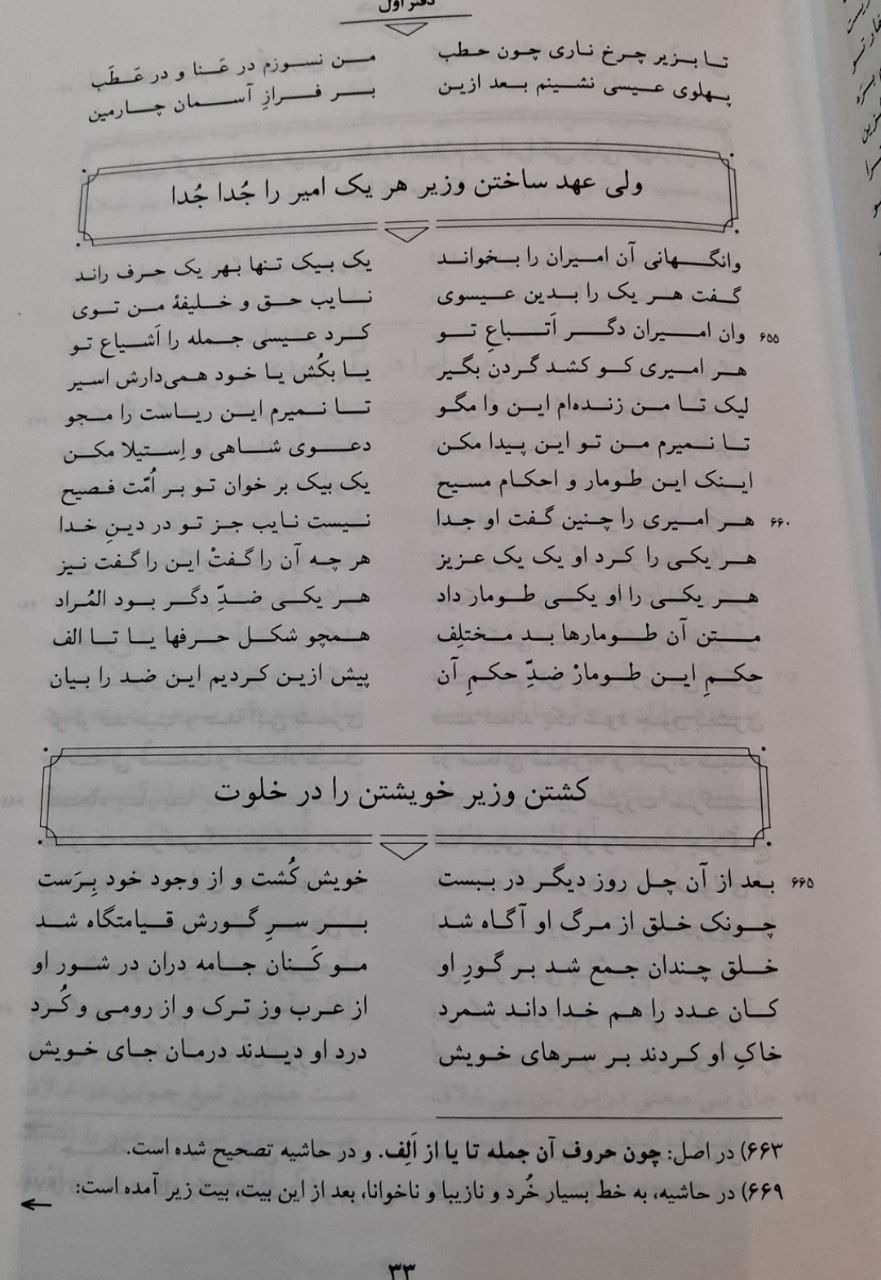 دفتر اول
تا بزیر چرخ ناری چون حطب من نسوزم در عَنا و در عَطَب
پهلوی عیسی نشینم بعد ازین بر فرازِ آسمان چارمین
ولی عهد ساختن وزیر هر یک امیر را جُدا جُدا
وانگهانی آن امیران را بخواند یک بیک تنها بهر یک حرف راند
گفت هر یک را بدین عیسوی نایب حق و خلیفهٔ من توی
۶۵۵ وان امیران دگر اَتباعِ تو کرد عیسی جمله را اَشیاع تو
هر امیری کو کشد گردن بگیر یا بکُش یا خود همی‌دارش اسیر
لیک تا من زنده‌ام این وا مگو تا نمیرم این ریاست را مجو
تا نمیرم من تو این پیدا مکن دعوی شاهی و اِستیلا مکن
اینک این طومار و احکام مسیح یک بیک بر خوان تو بر اُمّت فصیح
۶۶۰ هر امیری را چنین گفت او جدا نیست نایب جز تو در دینِ خدا
هر یکی را کرد او یک یک عزیز هر چه آن را گفتْ این را گفت نیز
هر یکی را او یکی طومار داد هر یکی ضدِّ دگر بود المُراد
متن آن طومارها بد مختلِف همچو شکل حرفها یا تا الف
حکمِ این طومارْ ضدِّ حکمِ آن پیش ازین کردیم این ضد را بیان
کشتن وزیر خویشتن را در خلوت
۶۶۵ بعد از آن چل روز دیگر در ببست خویش کُشت و از وجود خود بِرَست
چونک خلق از مرگ او آگاه شد بر سرِ گورش قیامتگاه شد
خلق چندان جمع شد بر گورِ او مو کَنان جامه دران در شور او
کان عدد را هم خدا داند شمرد از عرب وز ترک و از رومی و کُرد
خاکِ او کردند بر سرهای خویش درد او دیدند درمان جای خویش
۶۶۳) در اصل: چون حروف آن جمله تا یا از اَلِف. و در حاشیه تصحیح شده است.
۶۶۹) در حاشیه، به خط بسیار خُرد و نازیبا و ناخوانا، بعد از این بیت، بیت زیر آمده است:
۳۳